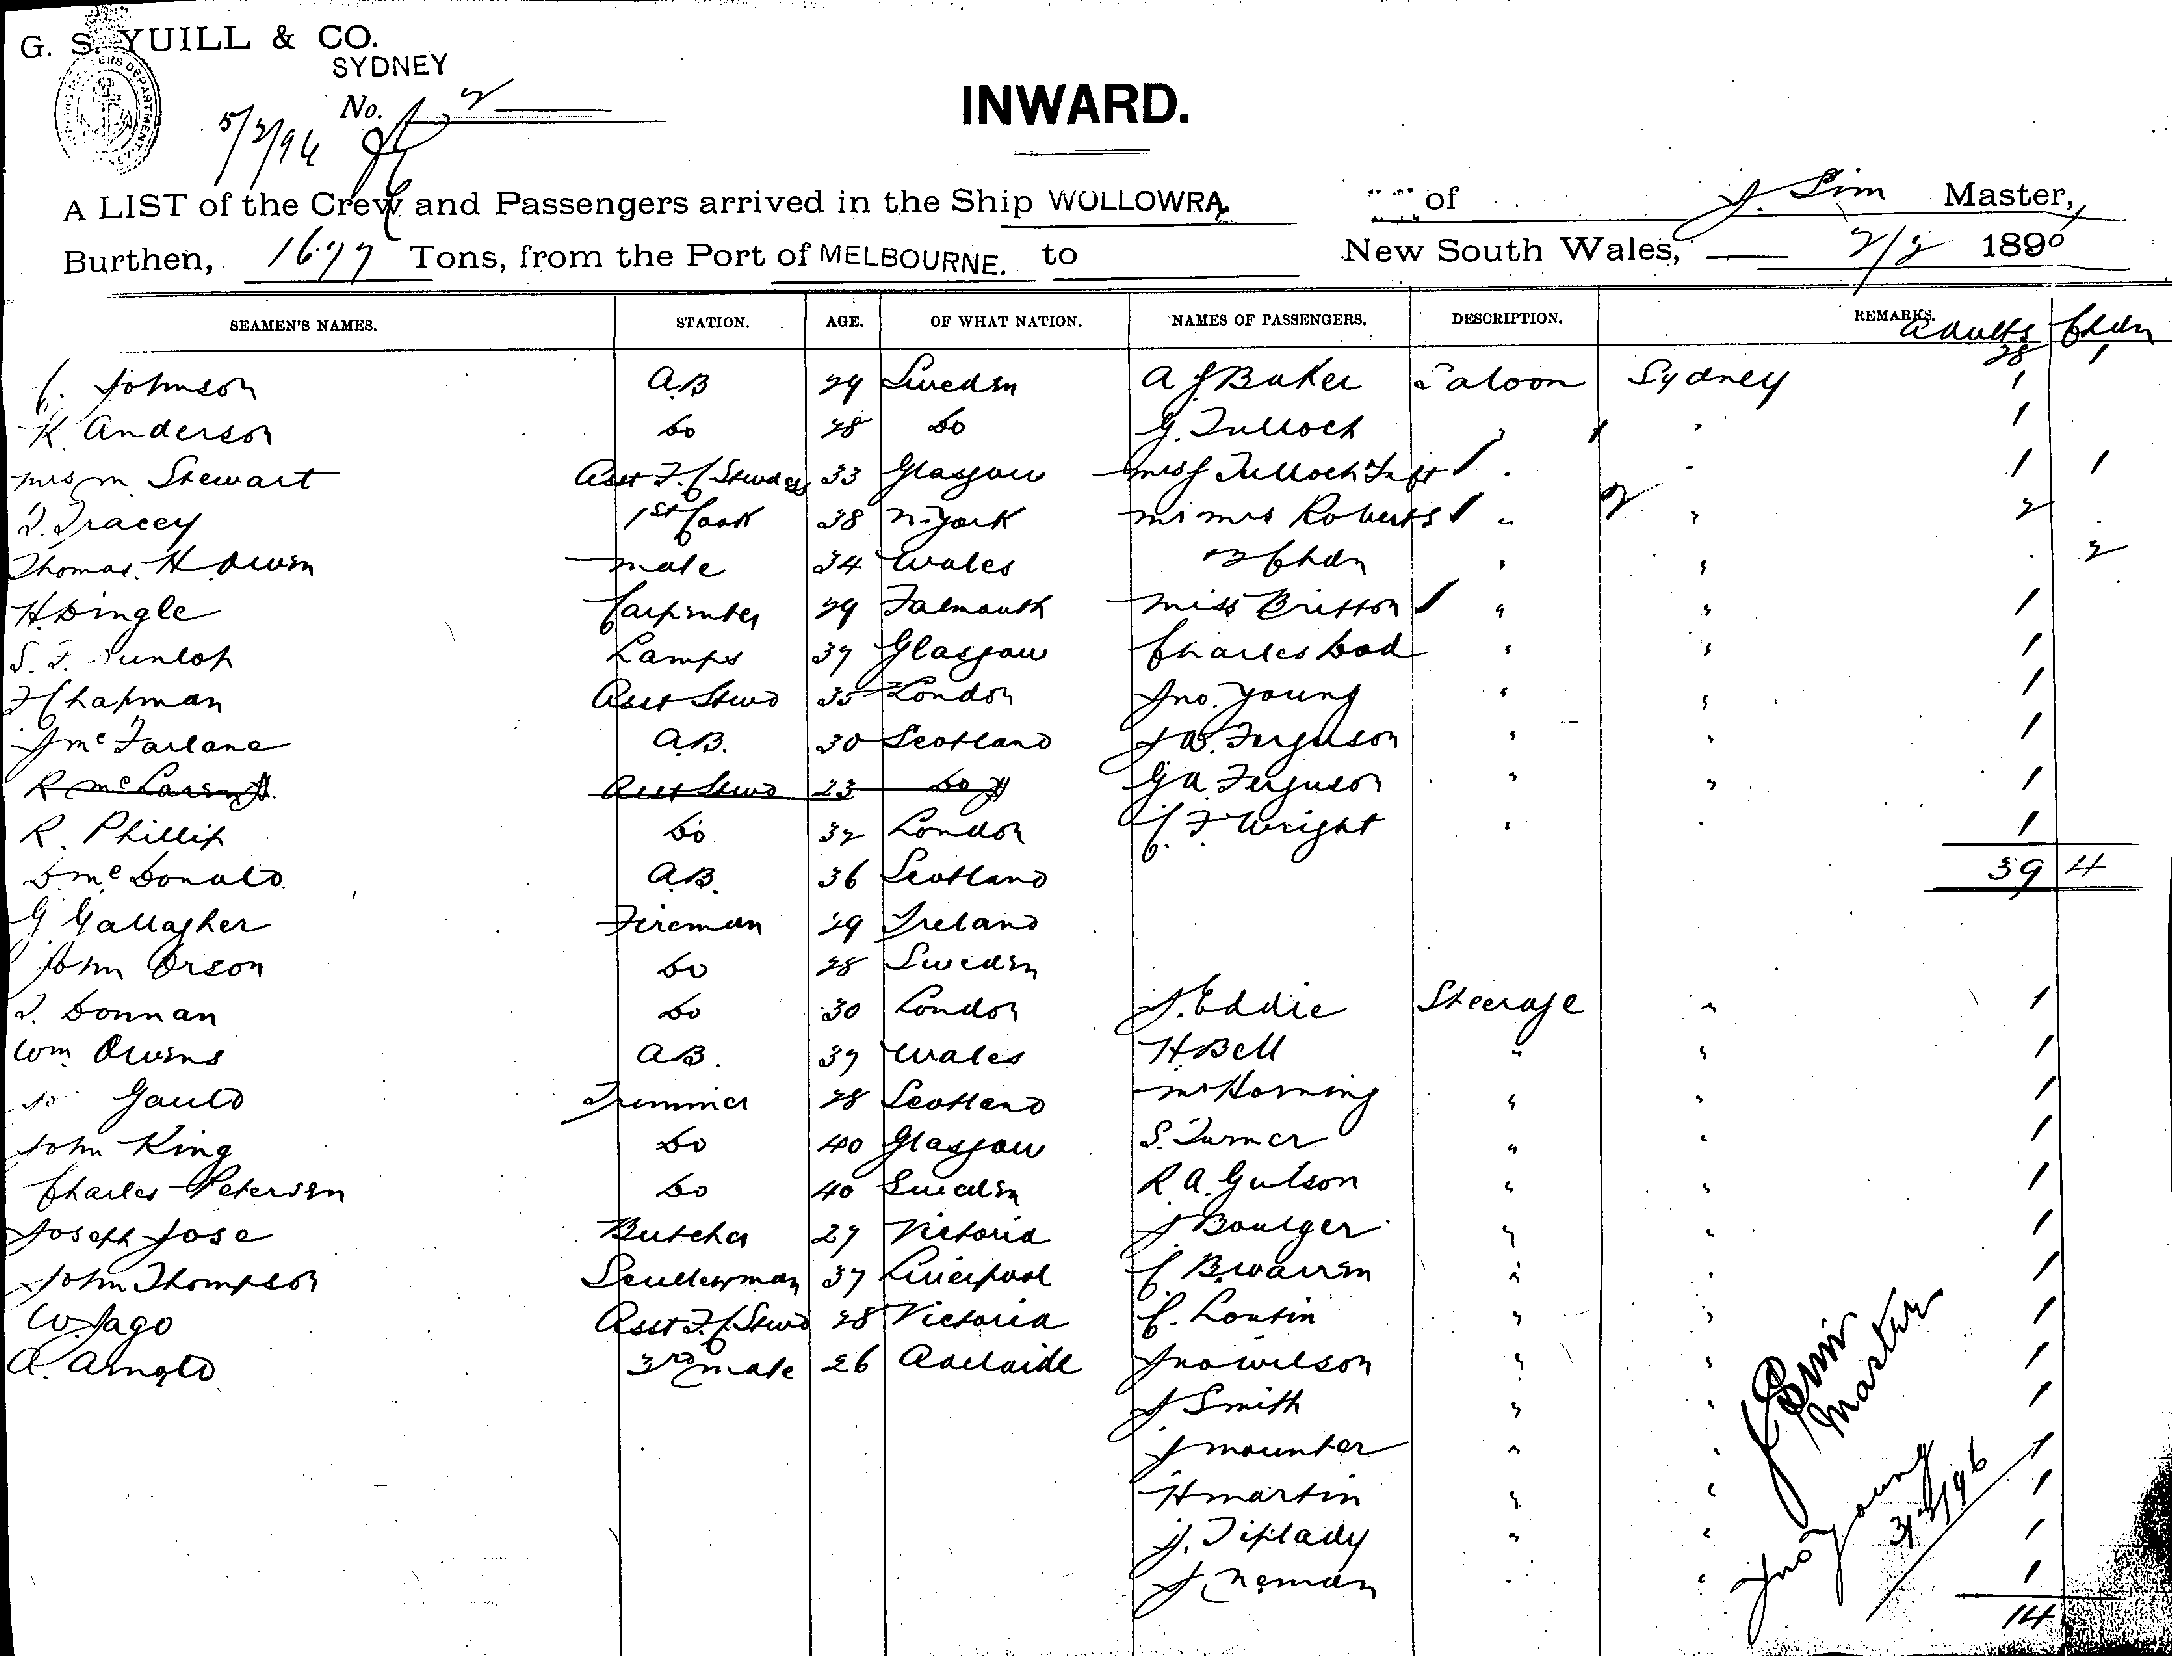 G. S. YUILL & CO.
SYDNEY
No. 2
5/2/96
INWARD.
A LIST of the Crew and Passengers arrived in the Ship WOLLOWRA of J. Sim Master,
Burthen, 1677 Tons, from the Port of MELBOURNE. to New South Wales, 2/2 189
SEAMEN'S NAMES. STATION. AGE. OF WHAT NATION. NAMES OF PASSENGERS. DESCRIPTION. REMARKS.
Adults Chdn
28 1
C. Johnson A.B 29 Sweden A J Baker Saloon Sydney 1
K. Anderson Do 28 Do G. Tulloch " " 1
Mrs M Stewart Asst F.C Stwdess 33 Glasgow Mrs Tulloch " " 1 1
T. Tracey 1st Cook 38 N. York Mr Mrs Roberts " 2 " 2
Thomas H Owen Mate 34 Wales 2 Chdn " " 2
H. Dingle Carpenter 29 Falmouth Miss Britton " " 1
S. F. Dunlop Lamps 37 Glasgow Charles Dod " " 1
F Chapman Asst Stwd 35 London Jno. Young " " 1
J McFarlane A.B. 30 Scotland J W. Ferguson " " 1
R McLaren Asst Stwd 23 Do G A. Ferguson " " 1
R. Phillip Do 32 London C. F. Wright " " 1
D. McDonald A.B. 36 Scotland 39 4
G Gallagher Fireman 29 Ireland
John Orson Do 28 Sweden
T. Donnan Do 30 London J. Eddie Steerage " 1
Wm Owens A.B. 37 Wales H. Bell " " 1
Gauld Trimmer 28 Scotland Mr Horning " " 1
John King Do 40 Glasgow S. Turner " " 1
Charles Petersen Do 40 Sweden R. A. Gulson " " 1
Joseph Jose Butcher 27 Victoria J Boulger " " 1
John Thompson Scullerman 37 Liverpool C B. Warren " " 1
W. Jago Asst F.C. Stwd 28 Victoria C. Loutin " " 1
A. Arnold 3rd Mate 26 Adelaide Jno Wilson " " 1
J Smith " " 1
J Mounter " " 1
H Martin " " 1
J. Tiplady " " 1
J. " 1
14
J Sim
Master
Jno Young
3/2/96